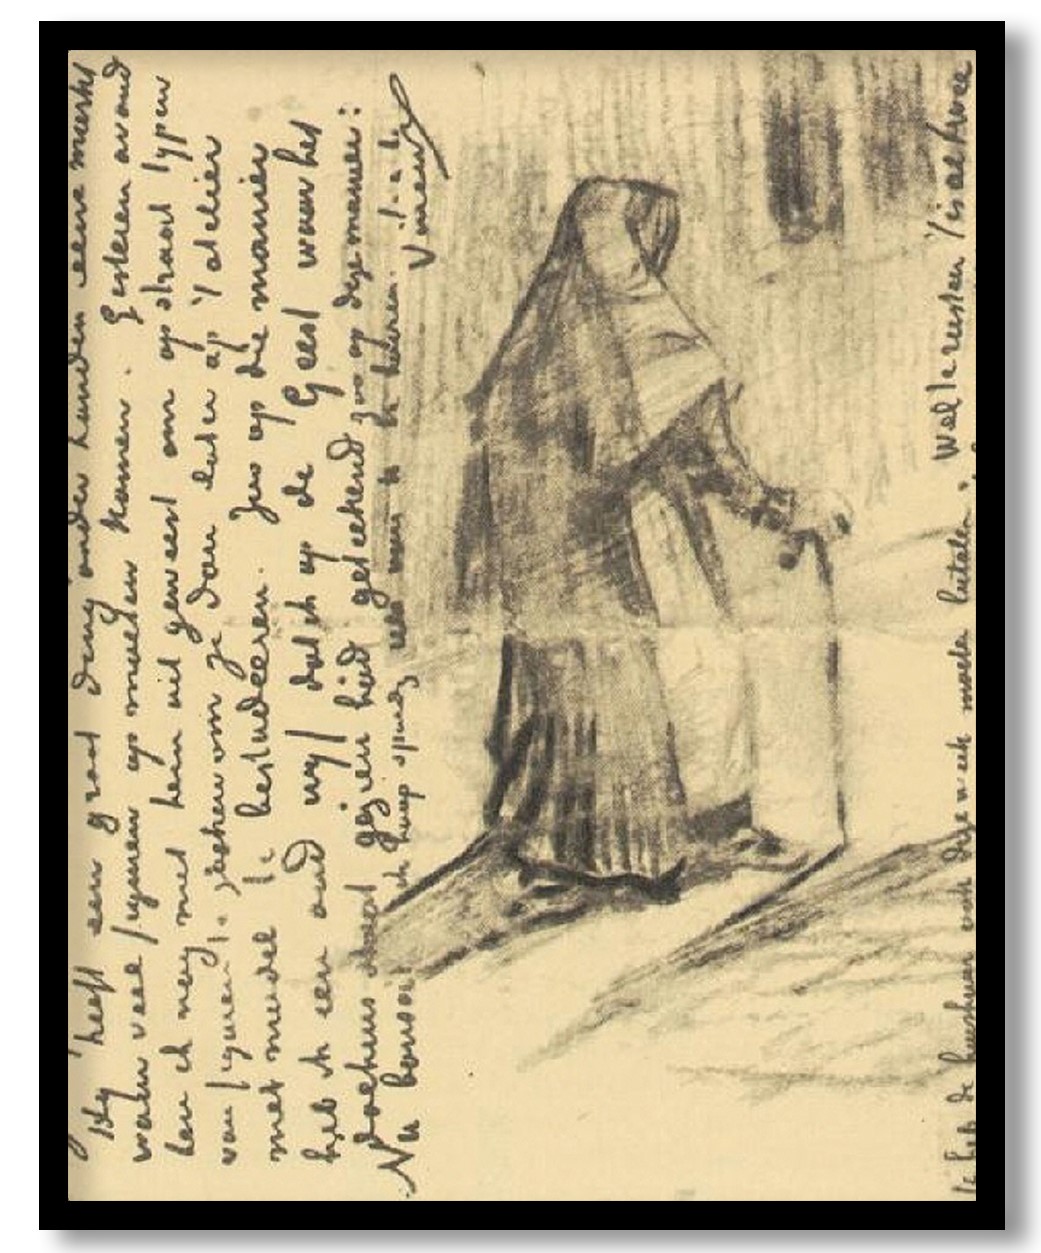 Hij heeft een groot ding onder handen eene markt
waarin veel figuren op moeten komen. Gisteren avond
ben ik nog met hem uit geweest om op straat typen
van figuren te zoeken om ze dan later op 't atelier
met model te bestudeeren. Zoo op die manier
heb ik een oud wijf dat ik op de Geest waar het
dolhuis staat gezien had geteekend zoo op deze manier:
Nu bonsoir ik hoop spoedig eens van U te hooren. t. à t.
Vincent
Ik heb de huishuur ook deze week moeten betalen. Wel te rusten 't is al twee